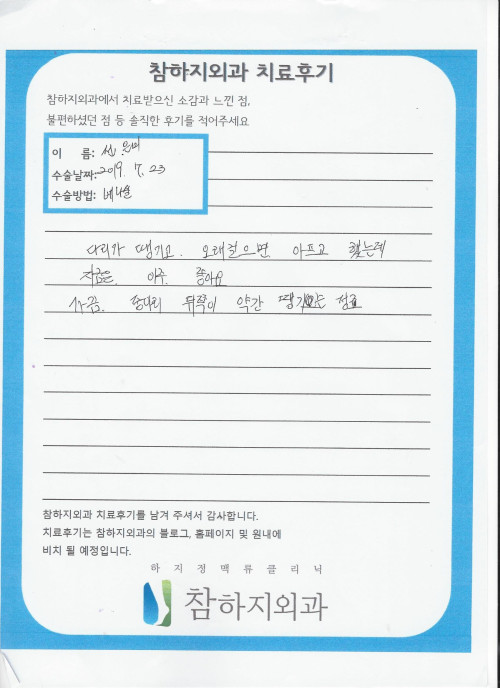 참하지외과 치료후기
참하지외과에서 치료받으신 소감과 느낀 점,
불편하셨던 점 등 솔직한 후기를 적어주세요
이 름:
수술날짜: 2019. 7. 23
수술방법: 베나실
다리가 땡기고. 오래걸으면 아프고 했는데
지금은. 아주. 좋아요
가끔. 종아리 뒤쪽이 약간 땡기는 정도
참하지외과 치료후기를 남겨 주셔서 감사합니다.
치료후기는 참하지외과의 블로그, 홈페이지 및 원내에
비치 될 예정입니다.
하지정맥류클리닉
참하지외과